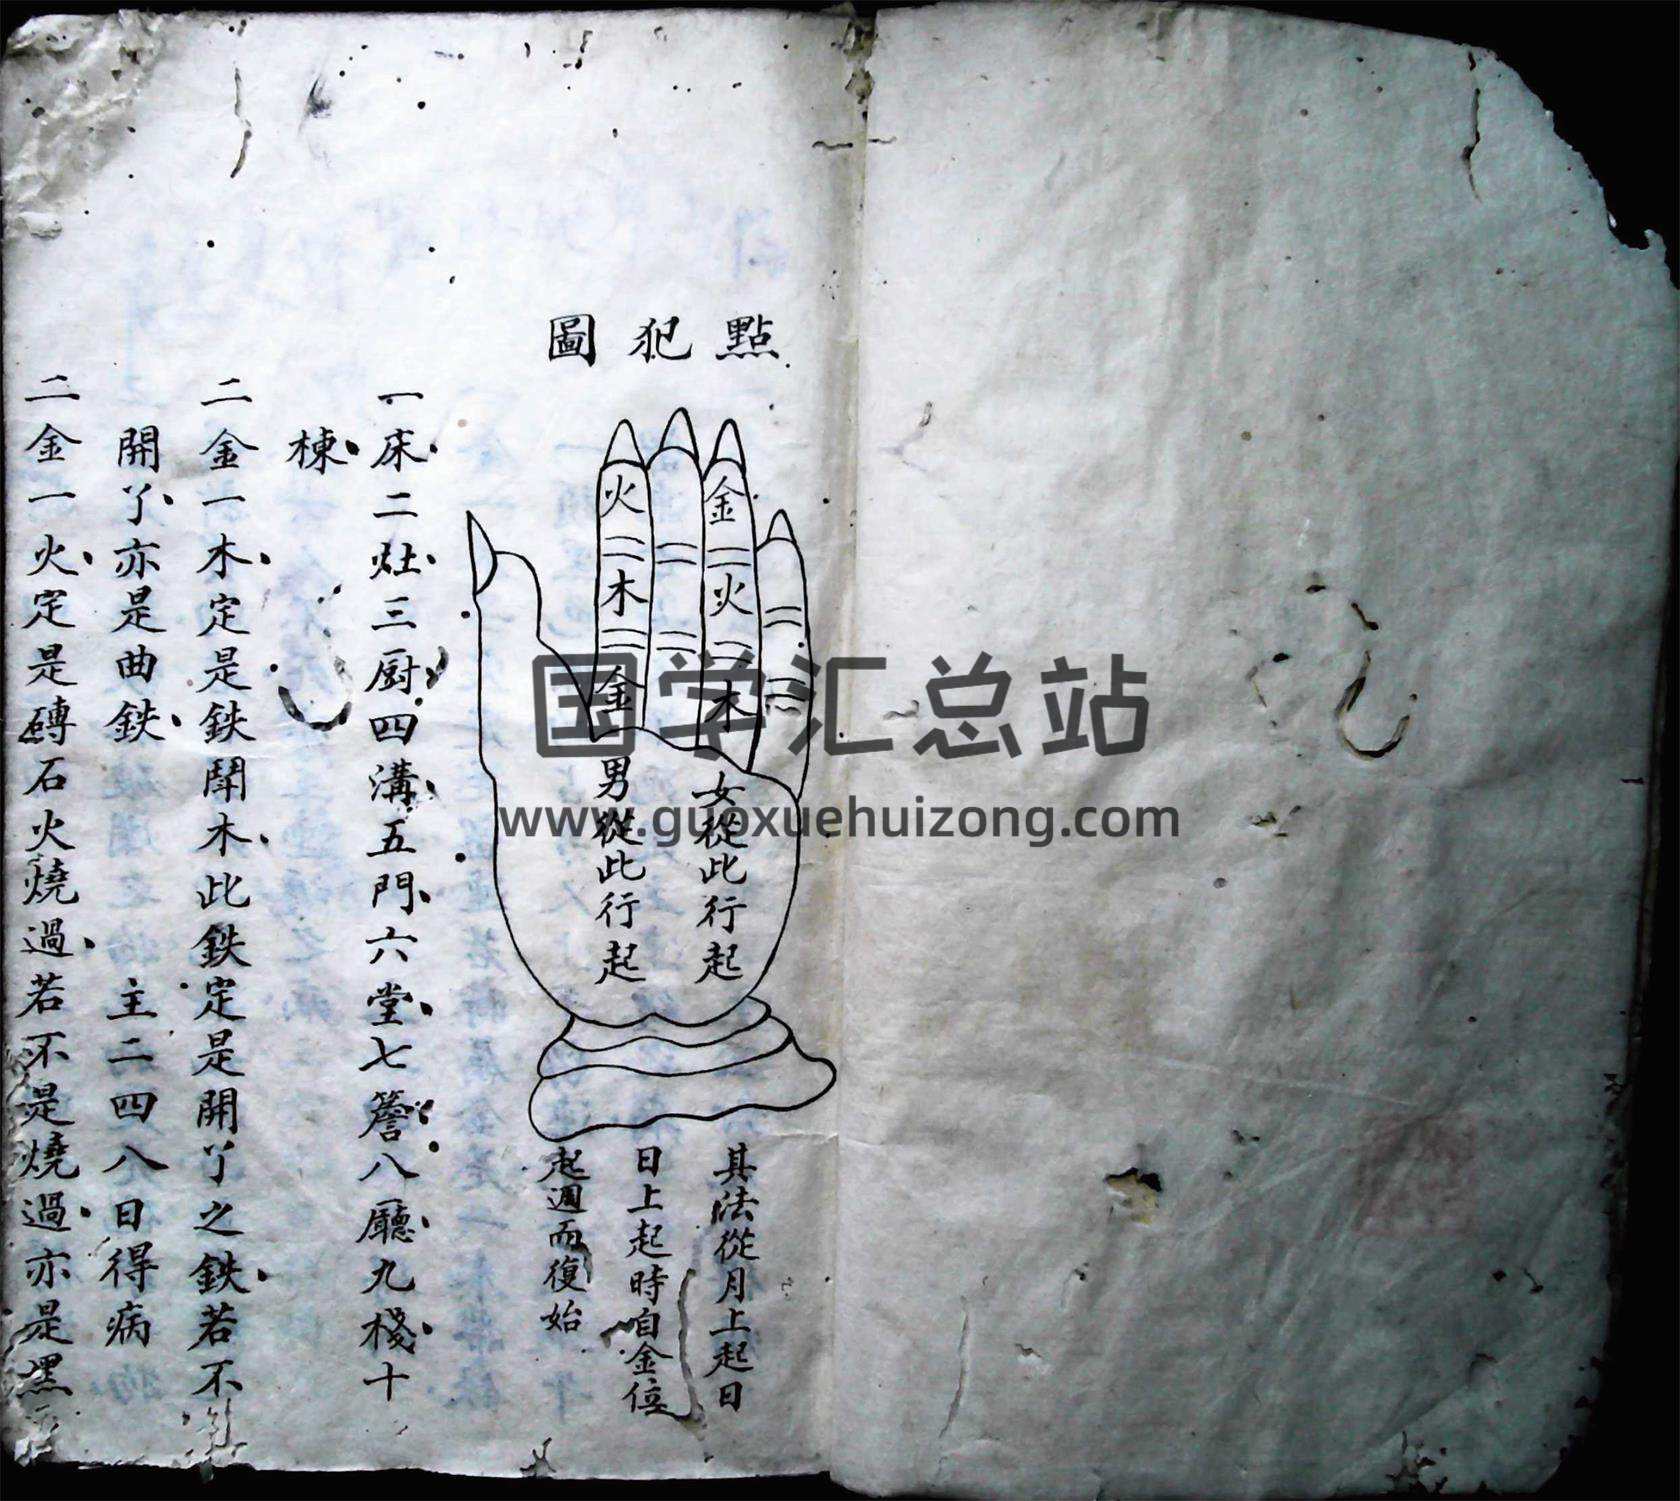 點犯圖
金
火
木
女從此行起
火
木
金
男從此行起
其法從月上起日
日上起時自金位
起週而復始
一床二灶三厨四溝五門六堂七簷八廳九棧十
棟
二金一木定是鉄鬪木此鉄定是開丫之鉄若不
開丫亦是曲鉄 主二四八日得病
二金一火定是磚石火燒過若不是燒過亦是黑
国学汇总站
www.guoxuehuizong.com